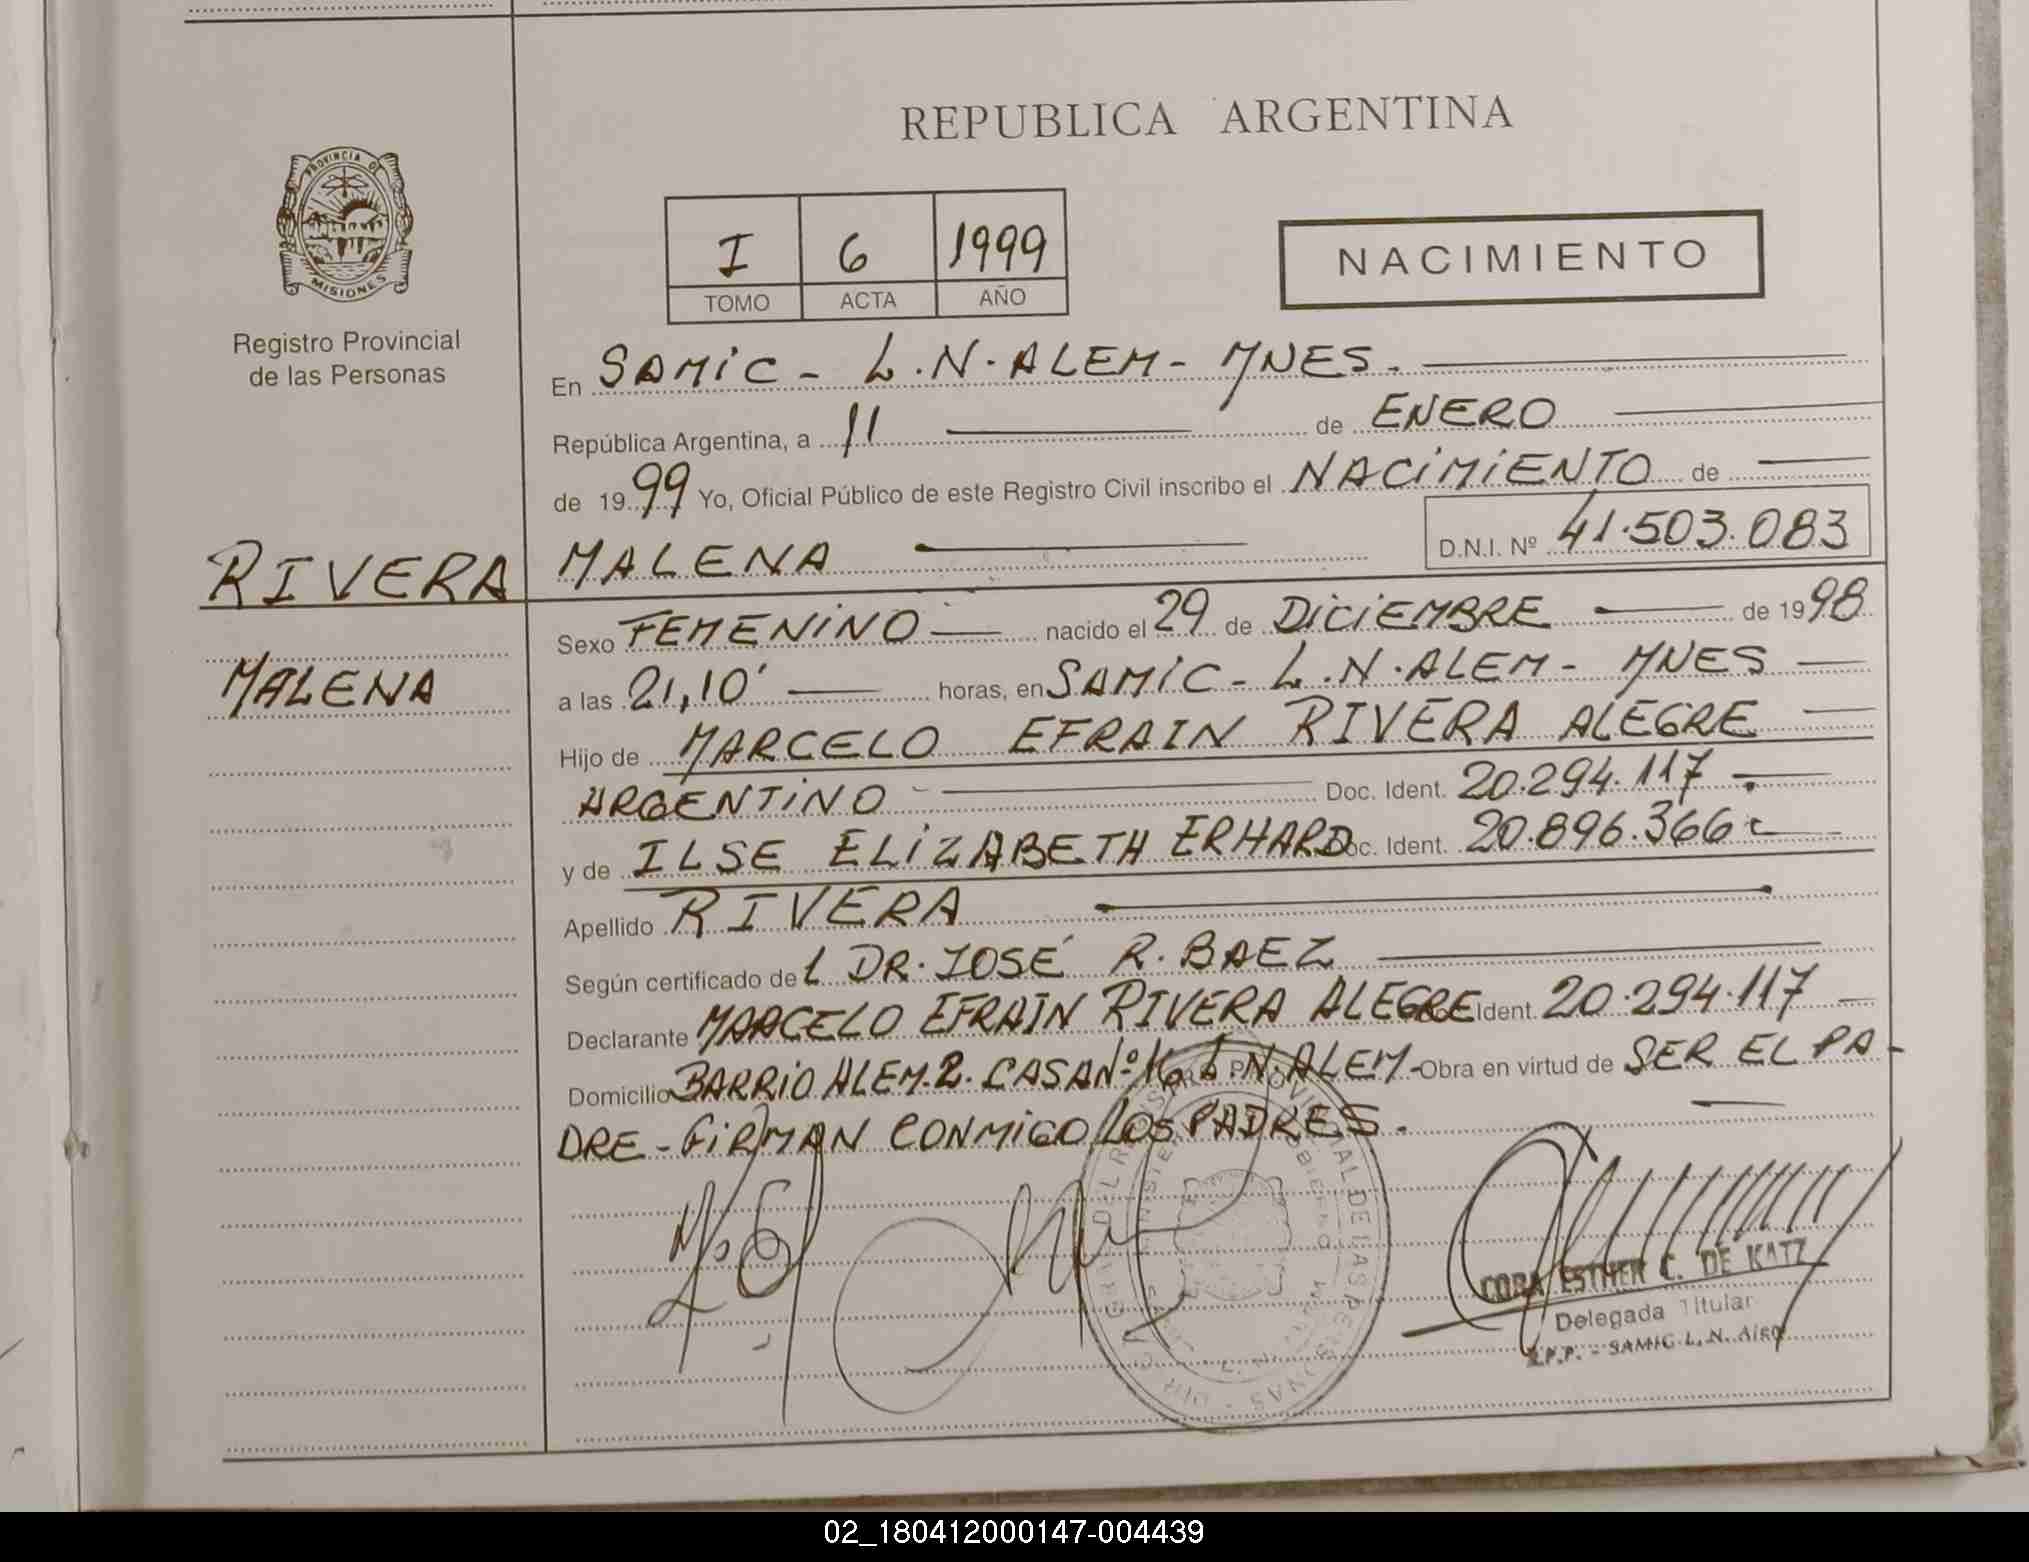 REPUBLICA ARGENTINA
PROVINCIA DE
MISIONES
I 6 1999
TOMO ACTA AÑO
NACIMIENTO
Registro Provincial
de las Personas
En SAMIC - L.N. ALEM - MNES.
República Argentina, a 11 de ENERO
de 1999 Yo, Oficial Público de este Registro Civil inscribo el NACIMIENTO de
RIVERA MALENA D.N.I. Nº 41.503.083
Sexo FEMENINO nacido el 29 de DICIEMBRE de 1998
MALENA
a las 21,10' horas, en SAMIC - L.N. ALEM - MNES
Hijo de MARCELO EFRAIN RIVERA ALEGRE
ARGENTINO Doc. Ident. 20.294.117
y de ILSE ELIZABETH ERHARD Doc. Ident. 20.896.366
Apellido RIVERA
Según certificado del DR. JOSÉ R. BAEZ
Declarante MARCELO EFRAIN RIVERA ALEGRE Ident. 20.294.117
Domicilio BARRIO ALEM. 2. CASA Nº 16 L.N. ALEM - Obra en virtud de SER EL PA-
DRE - FIRMAN CONMIGO LOS PADRES.
ESTHER C. DE KATZ
Delegada Titular
SAMIC L.N.
02_180412000147-004439